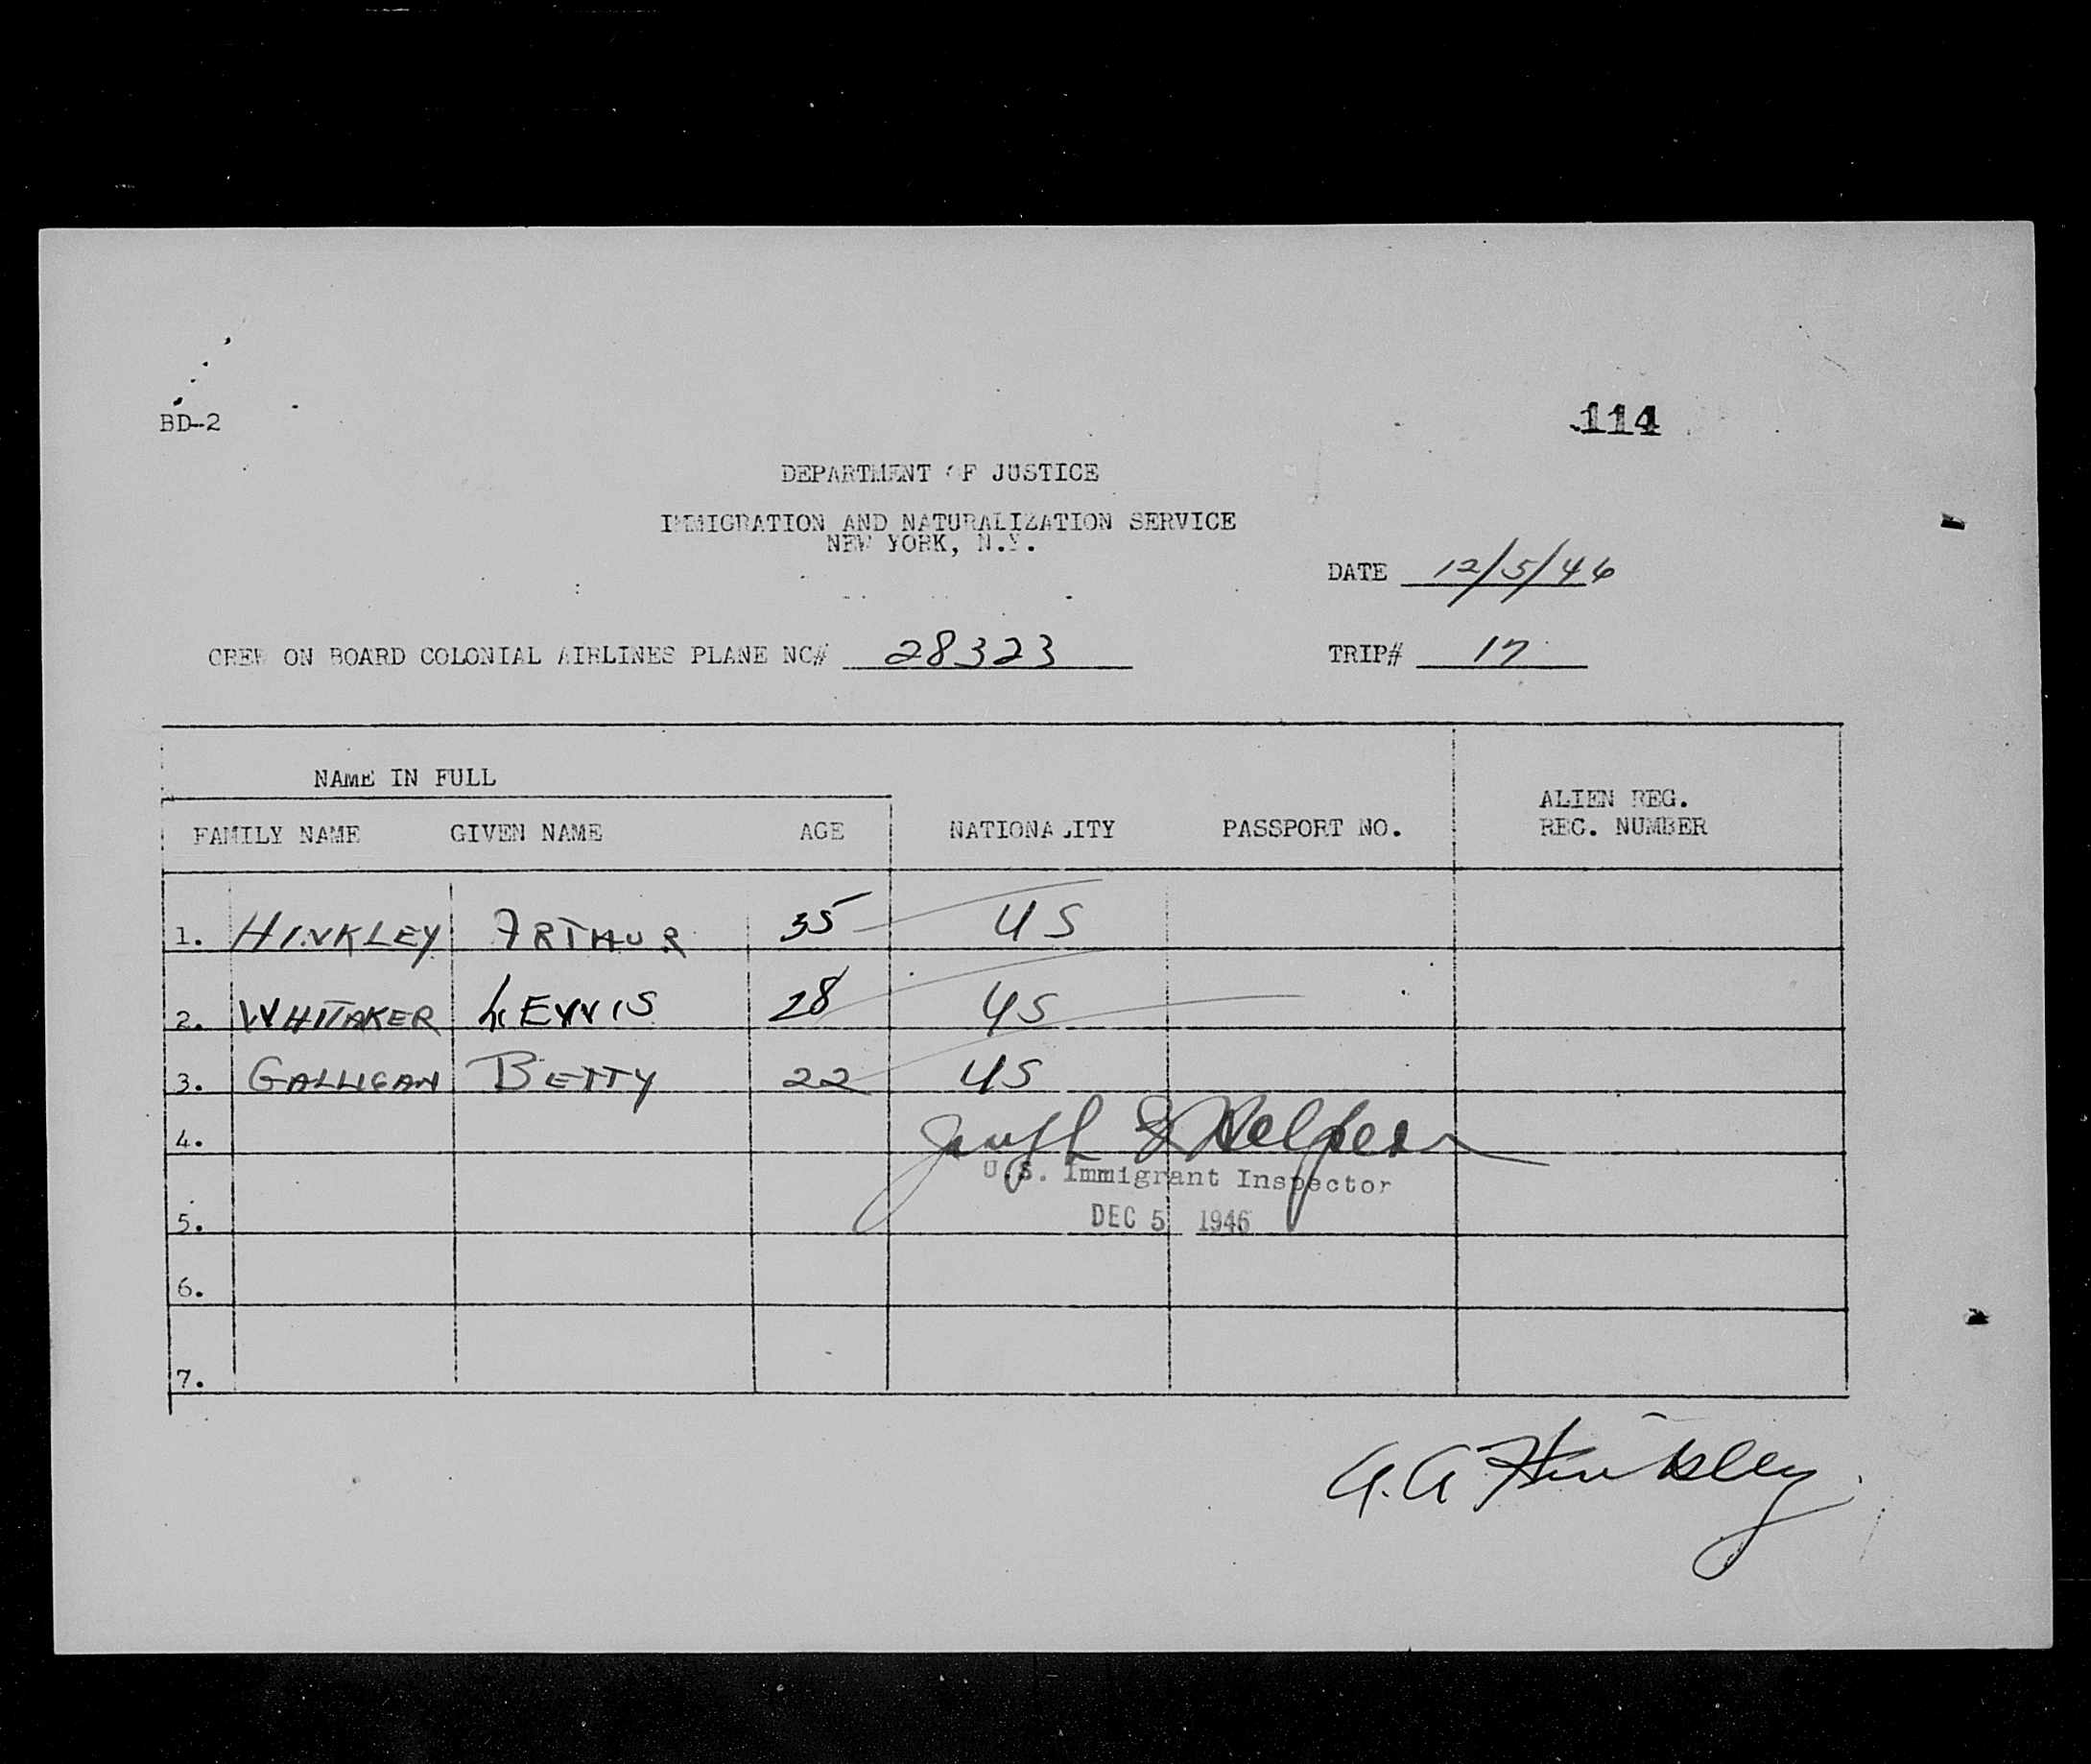 BD-2
114
DEPARTMENT OF JUSTICE
IMMIGRATION AND NATURALIZATION SERVICE
NEW YORK, N.Y.
DATE 12/5/46
CREW ON BOARD COLONIAL AIRLINES PLANE NC# 28323 TRIP# 17
NAME IN FULL
FAMILY NAME GIVEN NAME AGE NATIONALITY PASSPORT NO. ALIEN REG.
REG. NUMBER
1. HINKLEY ARTHUR 35 US
2. WHITAKER 28 US
3. GALLIGAN BETTY 22 US
4.
U.S. Immigrant Inspector
5. DEC 5 1946
6.
7.
A.A. Hinkley